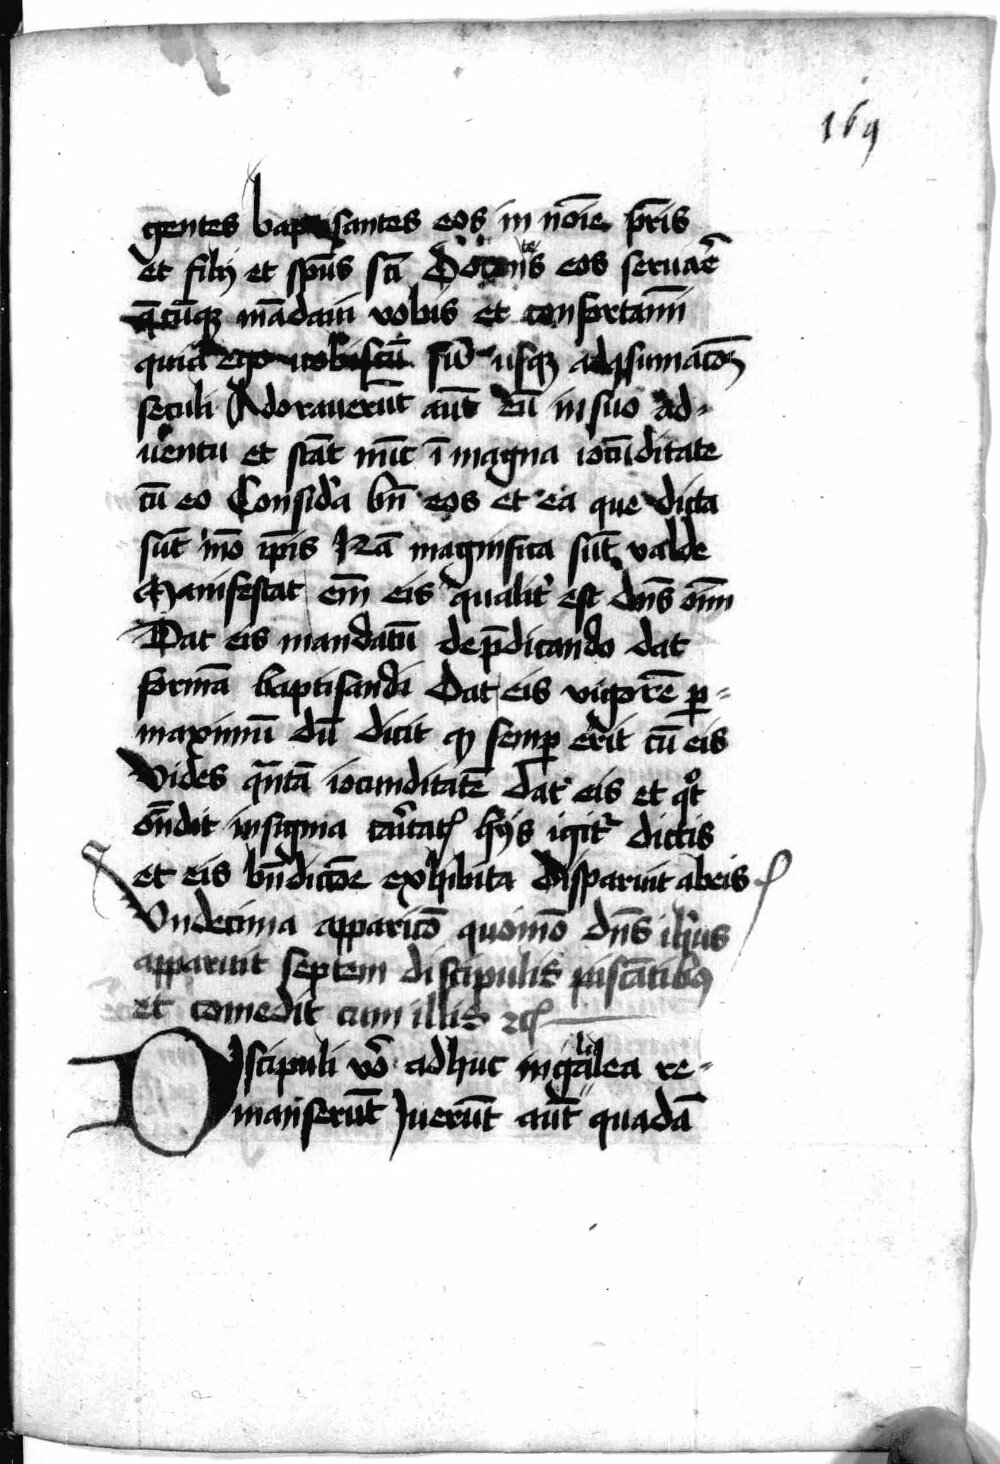 169
gentes baptisantes eos in nōie pr̄is
et filij et spūs scī Docentes eos seruare
q̄cūq mādaui vobis et confortamī
quia ego vobiscū sū usq ad 9sumacōꝫ
seculi Adorauerūt aūt eū in suo ad-
uentu et stāt nūc ī magna iocūditate
cū eo Considera bn̄ eos et ea que dicta
sūt mō ip̄is Nā magnifica sūt valde
Manifestat em̄ eis qualit' est dn̄s om̄
Dat eis mandatū de p̄dicando dat
formā baptisandi Dat eis vigorē ꝑ-
maximū dū dicit ꝙ semꝑ erit cū eis
Vides q̄ntā iocunditatē dat eis et qͦt
on̄dit insignia caritatꝭ hijs igit' dictis
et eis bn̄dictōe exhibita disparuit ab eis
Vndecima apparicō quomō dn̄s ih̄us
apparuit septem discipulis piscātibꝰ
et comedit cum illis ꝛcꝭ
Discipuli vō adhuc in galilea re-
manserūt Iuerūt aūt quadā